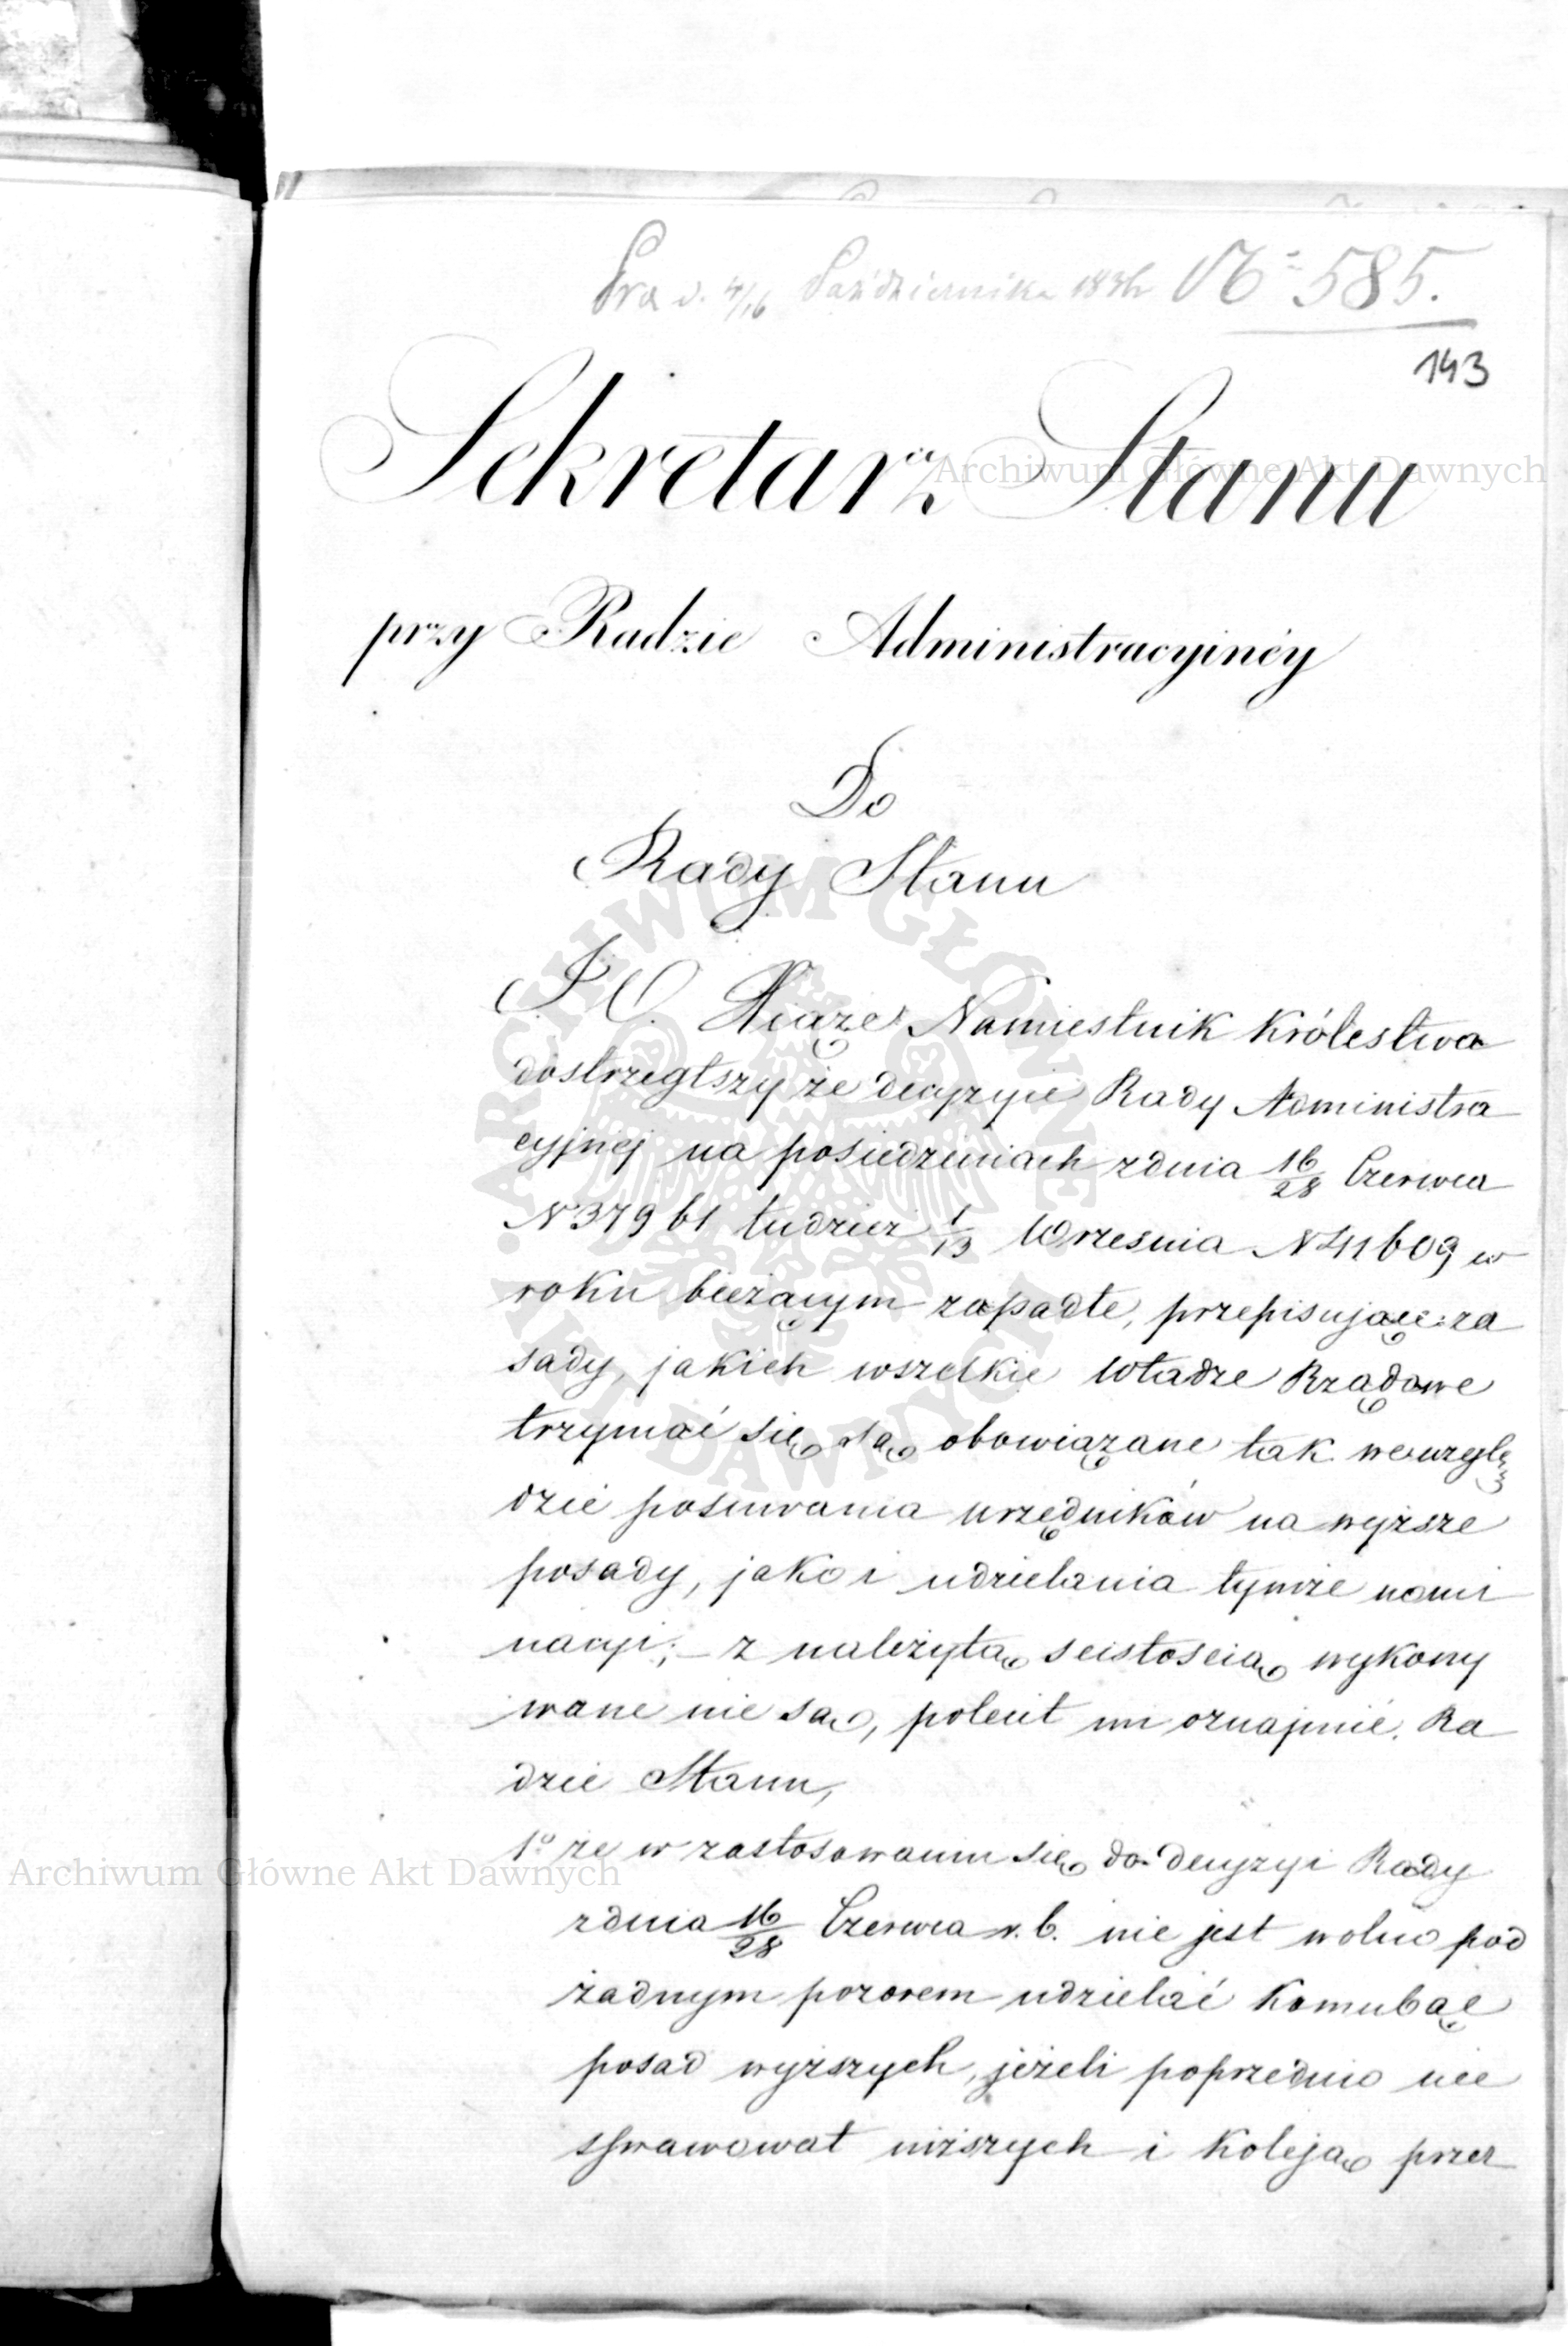 Pra d. 4/16 Października 183 No 585.
143
Sekretarz Stanu
przy Radzie Administracyinéy
Do
Rady Stanu
J. O. Xiąże Namiestnik Królestwa
dostrzegłszy że decyzyie Rady Administra
cyjnej na posiedzeniach zdnia 16/28 Czerwca
N 37961 tudzież 1/13 Wrzesnia N 41609 w
roku bieżącym zapadłe, przepisujące za
sady, jakich wszelkie Władze Rządowe
trzymać się są obowiązane tak we wzglę
dzie posuwania urzędników na wyższe
posady, jako i udzielania tymże nomi
nacyi; – z należytą scistoscią wykony
wane nie są, polecił mi oznajmić Ra
dzie Stanu,
1o że w zastosowaniu się do decyzyi Rady
zdnia 16/28 Czerwca r. b. nie jest wolno pod
żadnym pozorem udzielać komubąć
posad wyższych, jeżeli poprzednio nie
sprawował niższych i koleją przez
Archiwum Główne Akt Dawnych
Archiwum Główne Akt Dawnych
ARCHIWUM GŁÓWNE AKT DAWNYCH